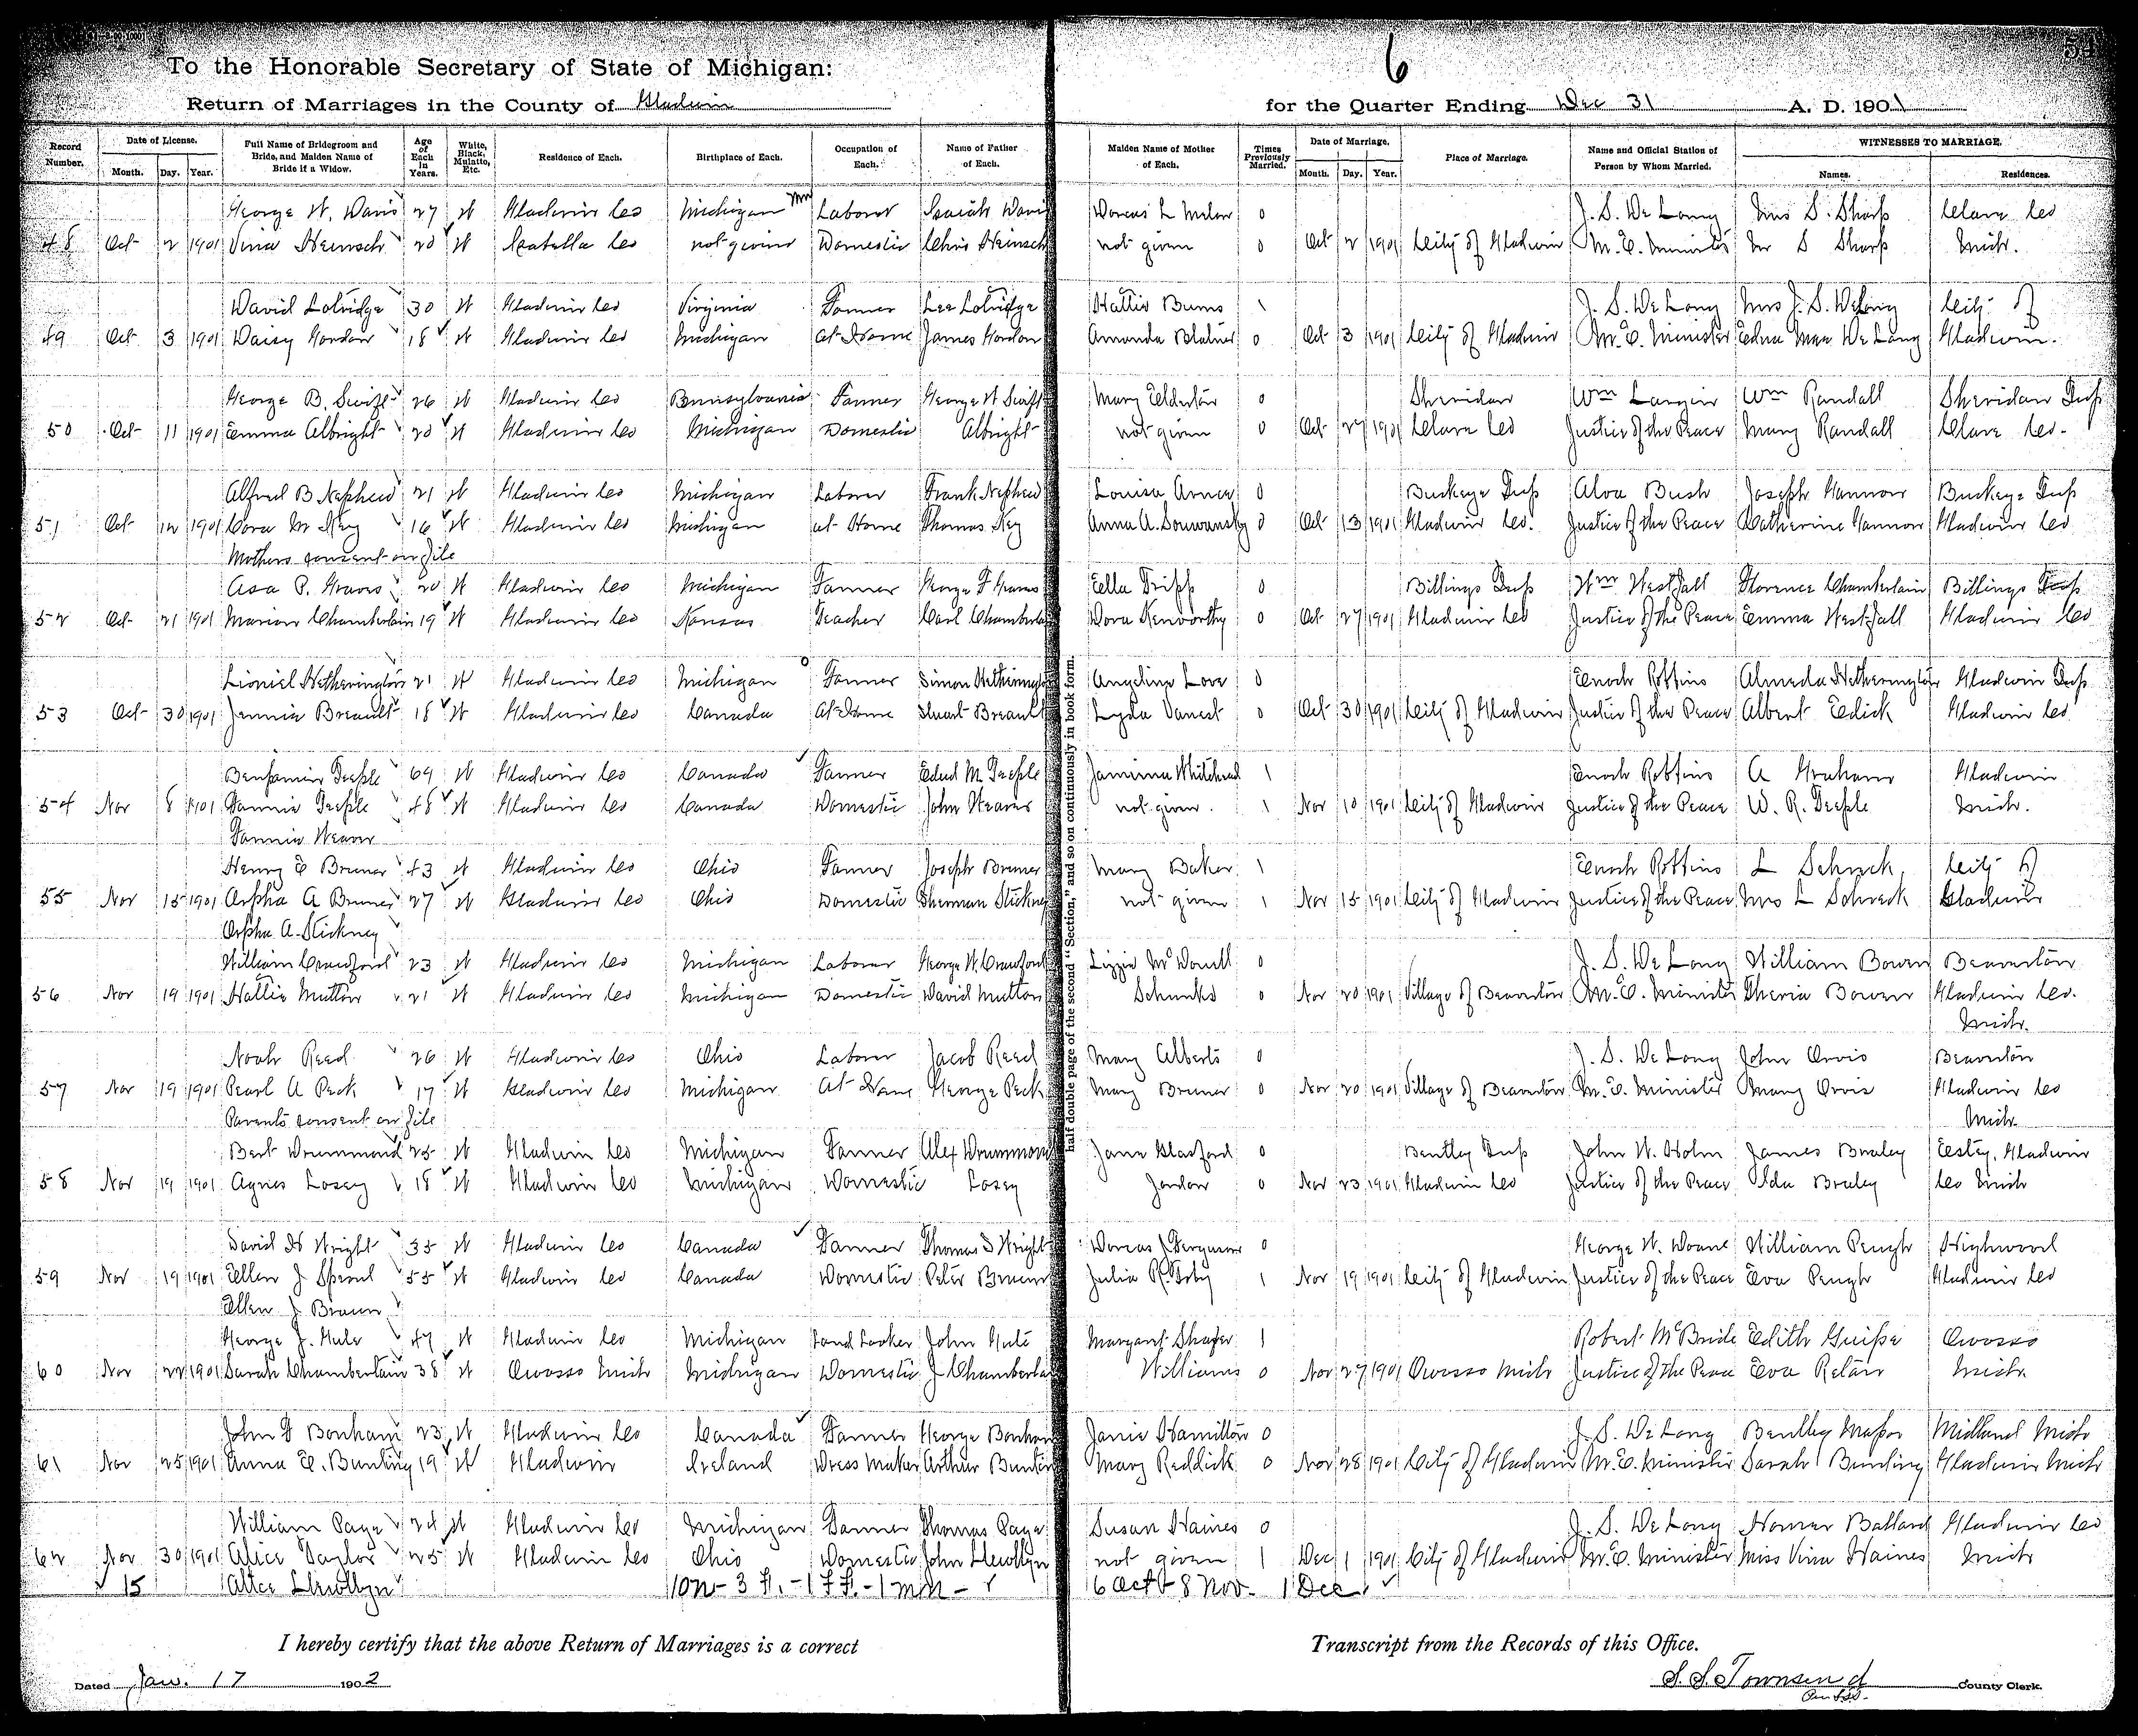 To the Honorable Secretary of State of Michigan:
6
Return of Marriages in the County of Gladwin for the Quarter Ending Dec 31 A. D. 1901
Record Number. Date of License. Month. Day. Year. Full Name of Bridegroom and Bride, and Maiden Name of Bride if a Widow. Age of Each in Years. White, Black, Mulatto, Etc. Residence of Each. Birthplace of Each. Occupation of Each. Name of Father of Each. Maiden Name of Mother of Each. Times Previously Married. Date of Marriage. Month. Day. Year. Place of Marriage. Name and Official Station of Person by Whom Married. WITNESSES TO MARRIAGE. Names. Residences.
George W. Davis 27 W Gladwin Co Michigan Laborer Isaiah Davis Dorcas L 0 J. S. De Long Mrs S. Sharp Clare Co
48 Oct 2 1901 Vina Heinsch 20 W Isabella Co not given Domestic Chris Heinsch not given 0 Oct 2 1901 City of Gladwin M. E. Minister Mr S Sharp Mich.
David Lotridge 30 W Gladwin Co Virginia Farmer Lee Lotridge Hattie Burns 1 J. S. De Long Mrs J. S. De Long City of
49 Oct 3 1901 Daisy Gordon 18 W Gladwin Co Michigan At Home James Gordon Amanda 0 Oct 3 1901 City of Gladwin M. E. Minister Edna Mae De Long Gladwin.
George B. Swift 26 W Gladwin Co Pennsylvania Farmer George W Swift Mary Elderton 0 Sheridan Wm Largin Wm Randall Sheridan Tup
50 Oct 11 1901 Emma Albright 20 W Gladwin Co Michigan Domestic Albright not given 0 Oct 27 1901 Clare Co Justice of the Peace Mary Randall Clare Co.
Alfred B Nephew 21 W Gladwin Co Michigan Laborer Frank Nephew Louisa 0 Buckeye Tup Alva Bush Joseph Hannon Buckeye Tup
51 Oct 12 1901 Cora M Key 16 W Gladwin Co Michigan at Home Thomas Key Anna A. 0 Oct 13 1901 Gladwin Co. Justice of the Peace Catherine Hannon Gladwin Co
Mothers consent on file
Asa P. Graves 20 W Gladwin Co Michigan Farmer George F Graves Ella Tripp 0 Billings Tup Wm Westfall Florence Chamberlain Billings Tup
52 Oct 21 1901 Marion Chamberlain 19 W Gladwin Co Kansas Teacher Carl Chamberla Dora Kenworthy 0 Oct 27 1901 Gladwin Co Justice of the Peace Emma Westfall Gladwin Co
Lioniel Hetherington 21 W Gladwin Co Michigan Farmer Simon Hetherington Angeline Love 0 Enoch Robbins Almeda Hetherington Gladwin Tup
53 Oct 30 1901 Jennie Breault 18 W Gladwin Co Canada At Home Stuart Breault Lyda Vanest 0 Oct 30 1901 City of Gladwin Justice of the Peace Albert Edick Gladwin Co
Benjamin Teeple 69 W Gladwin Co Canada Farmer Edwd M. Teeple Jamima Whitehead 1 Enoch Robbins A Graham Gladwin
54 Nov 8 1901 Fannie Teeple 48 W Gladwin Co Canada Domestic John Weaver not given. 1 Nov 10 1901 City of Gladwin Justice of the Peace W. R. Teeple Mich.
Fannie Weaver
Henry E Bruner 43 W Gladwin Co Ohio Farmer Joseph Bruner Mary Baker 1 Enoch Robbins L Schreck City of
55 Nov 15 1901 Orpha A Bruner 27 W Gladwin Co Ohio Domestic Sherman Stickney not given 1 Nov 15 1901 City of Gladwin Justice of the Peace Mrs L Schreck Gladwin
Orpha A. Stickney
William Crawford 23 W Gladwin Co Michigan Laborer George W. Crawford Lizzie McDonell 0 J. S. De Long William Bowen Beaverton
56 Nov 19 1901 Hattie Mutton 21 W Gladwin Co Michigan Domestic David Mutton Schunks 0 Nov 20 1901 Village of Beaverton M. E. Minister Bowen Gladwin Co.
Mich.
Noah Reed 26 W Gladwin Co Ohio Laborer Jacob Reed Mary Alberts 0 J. S. De Long John Orvis Beaverton
57 Nov 19 1901 Pearl A Peck 17 W Gladwin Co Michigan At Home George Peck Mary Bruner 0 Nov 20 1901 Village of Beaverton M. E. Minister Mary Orvis Gladwin Co
Parents consent on file Mich.
Bert Drummond 25 W Gladwin Co Michigan Farmer Alex Drummond Jane Glasford 0 Bentley Tup John W. Holm James Braley Estey, Gladwin
58 Nov 19 1901 Agnes Losey 18 W Gladwin Co Michigan Domestic Losey Jordon 0 Nov 23 1901 Gladwin Co Justice of the Peace Ida Braley Co Mich
David H Wright 35 W Gladwin Co Canada Farmer Thomas S Wright Dorcas J Ferguson 0 George W. Doane William Peugh Highwood
59 Nov 19 1901 Ellen J Sproul 55 W Gladwin Co Canada Domestic Peter Braun Julia 1 Nov 19 1901 City of Gladwin Justice of the Peace Eva Peugh Gladwin Co
Ellen J Braun
George J. Hule 47 W Gladwin Co Michigan Land Looker John Hule Margaret Shafer 1 Robert McBride Edith Guipe Owosso
60 Nov 22 1901 Sarah Chamberlain 38 W Owosso Mich Michigan Domestic J Chamberlain Williams 0 Nov 27 1901 Owosso Mich Justice of the Peace Eva Mich
John F Bonham 23 W Gladwin Co Canada Farmer George Bonham Janie Hamilton 0 J. S. De Long Bentley Major Midland Mich
61 Nov 25 1901 Anna E. Bunting 19 W Gladwin Ireland Dress Maker Arthur Bunting Mary Reddick 0 Nov 28 1901 City of Gladwin M. E. Minister Sarah Bunting Gladwin Mich
William Page 24 W Gladwin Co Michigan Farmer Thomas Page Susan Haines 0 J. S. De Long Homer Ballard Gladwin Co
62 Nov 30 1901 Alice Taylor 25 W Gladwin Co Ohio Domestic John Llewllyn not given 1 Dec 1 1901 City of Gladwin M. E. Minister Miss Vina Haines Mich
15 Alice Llewllyn 10 n - 3 fl. - 1 F fl. - 1 mn - 6 Oct 8 Nov. 1 Dec
half double page of the second "Section," and so on continuously in book form.
I hereby certify that the above Return of Marriages is a correct Transcript from the Records of this Office.
Dated Jan. 17 1902 S. S. Townsend County Clerk.